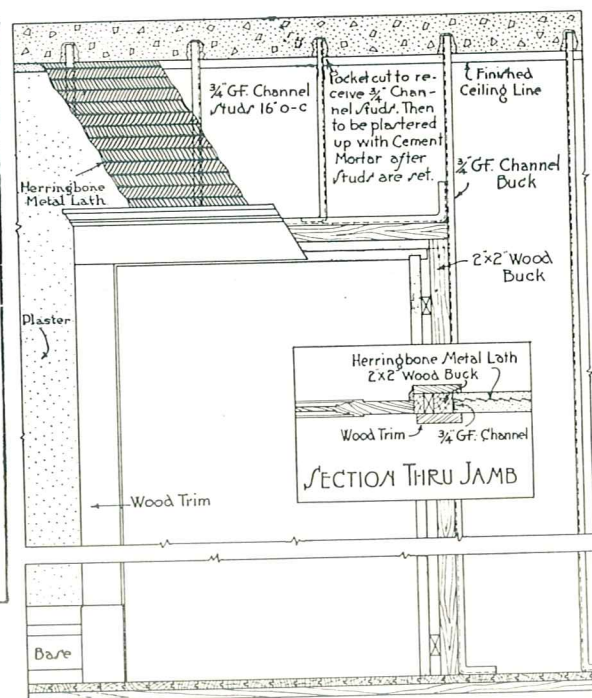 ¾" GF. Channel
Studs 16" o-c
Pocket cut to re-
ceive ¾" Chan-
nel Studs. Then
to be plastered
up with Cement
Mortar after
studs are set.
Finished
Ceiling Line
Herringbone
Metal Lath
¾" GF. Channel
Buck
2"×2" Wood
Buck
Plaster
Herringbone Metal Lath
2"×2" Wood Buck
Wood Trim
¾" GF. Channel
SECTION THRU JAMB
Wood Trim
Base